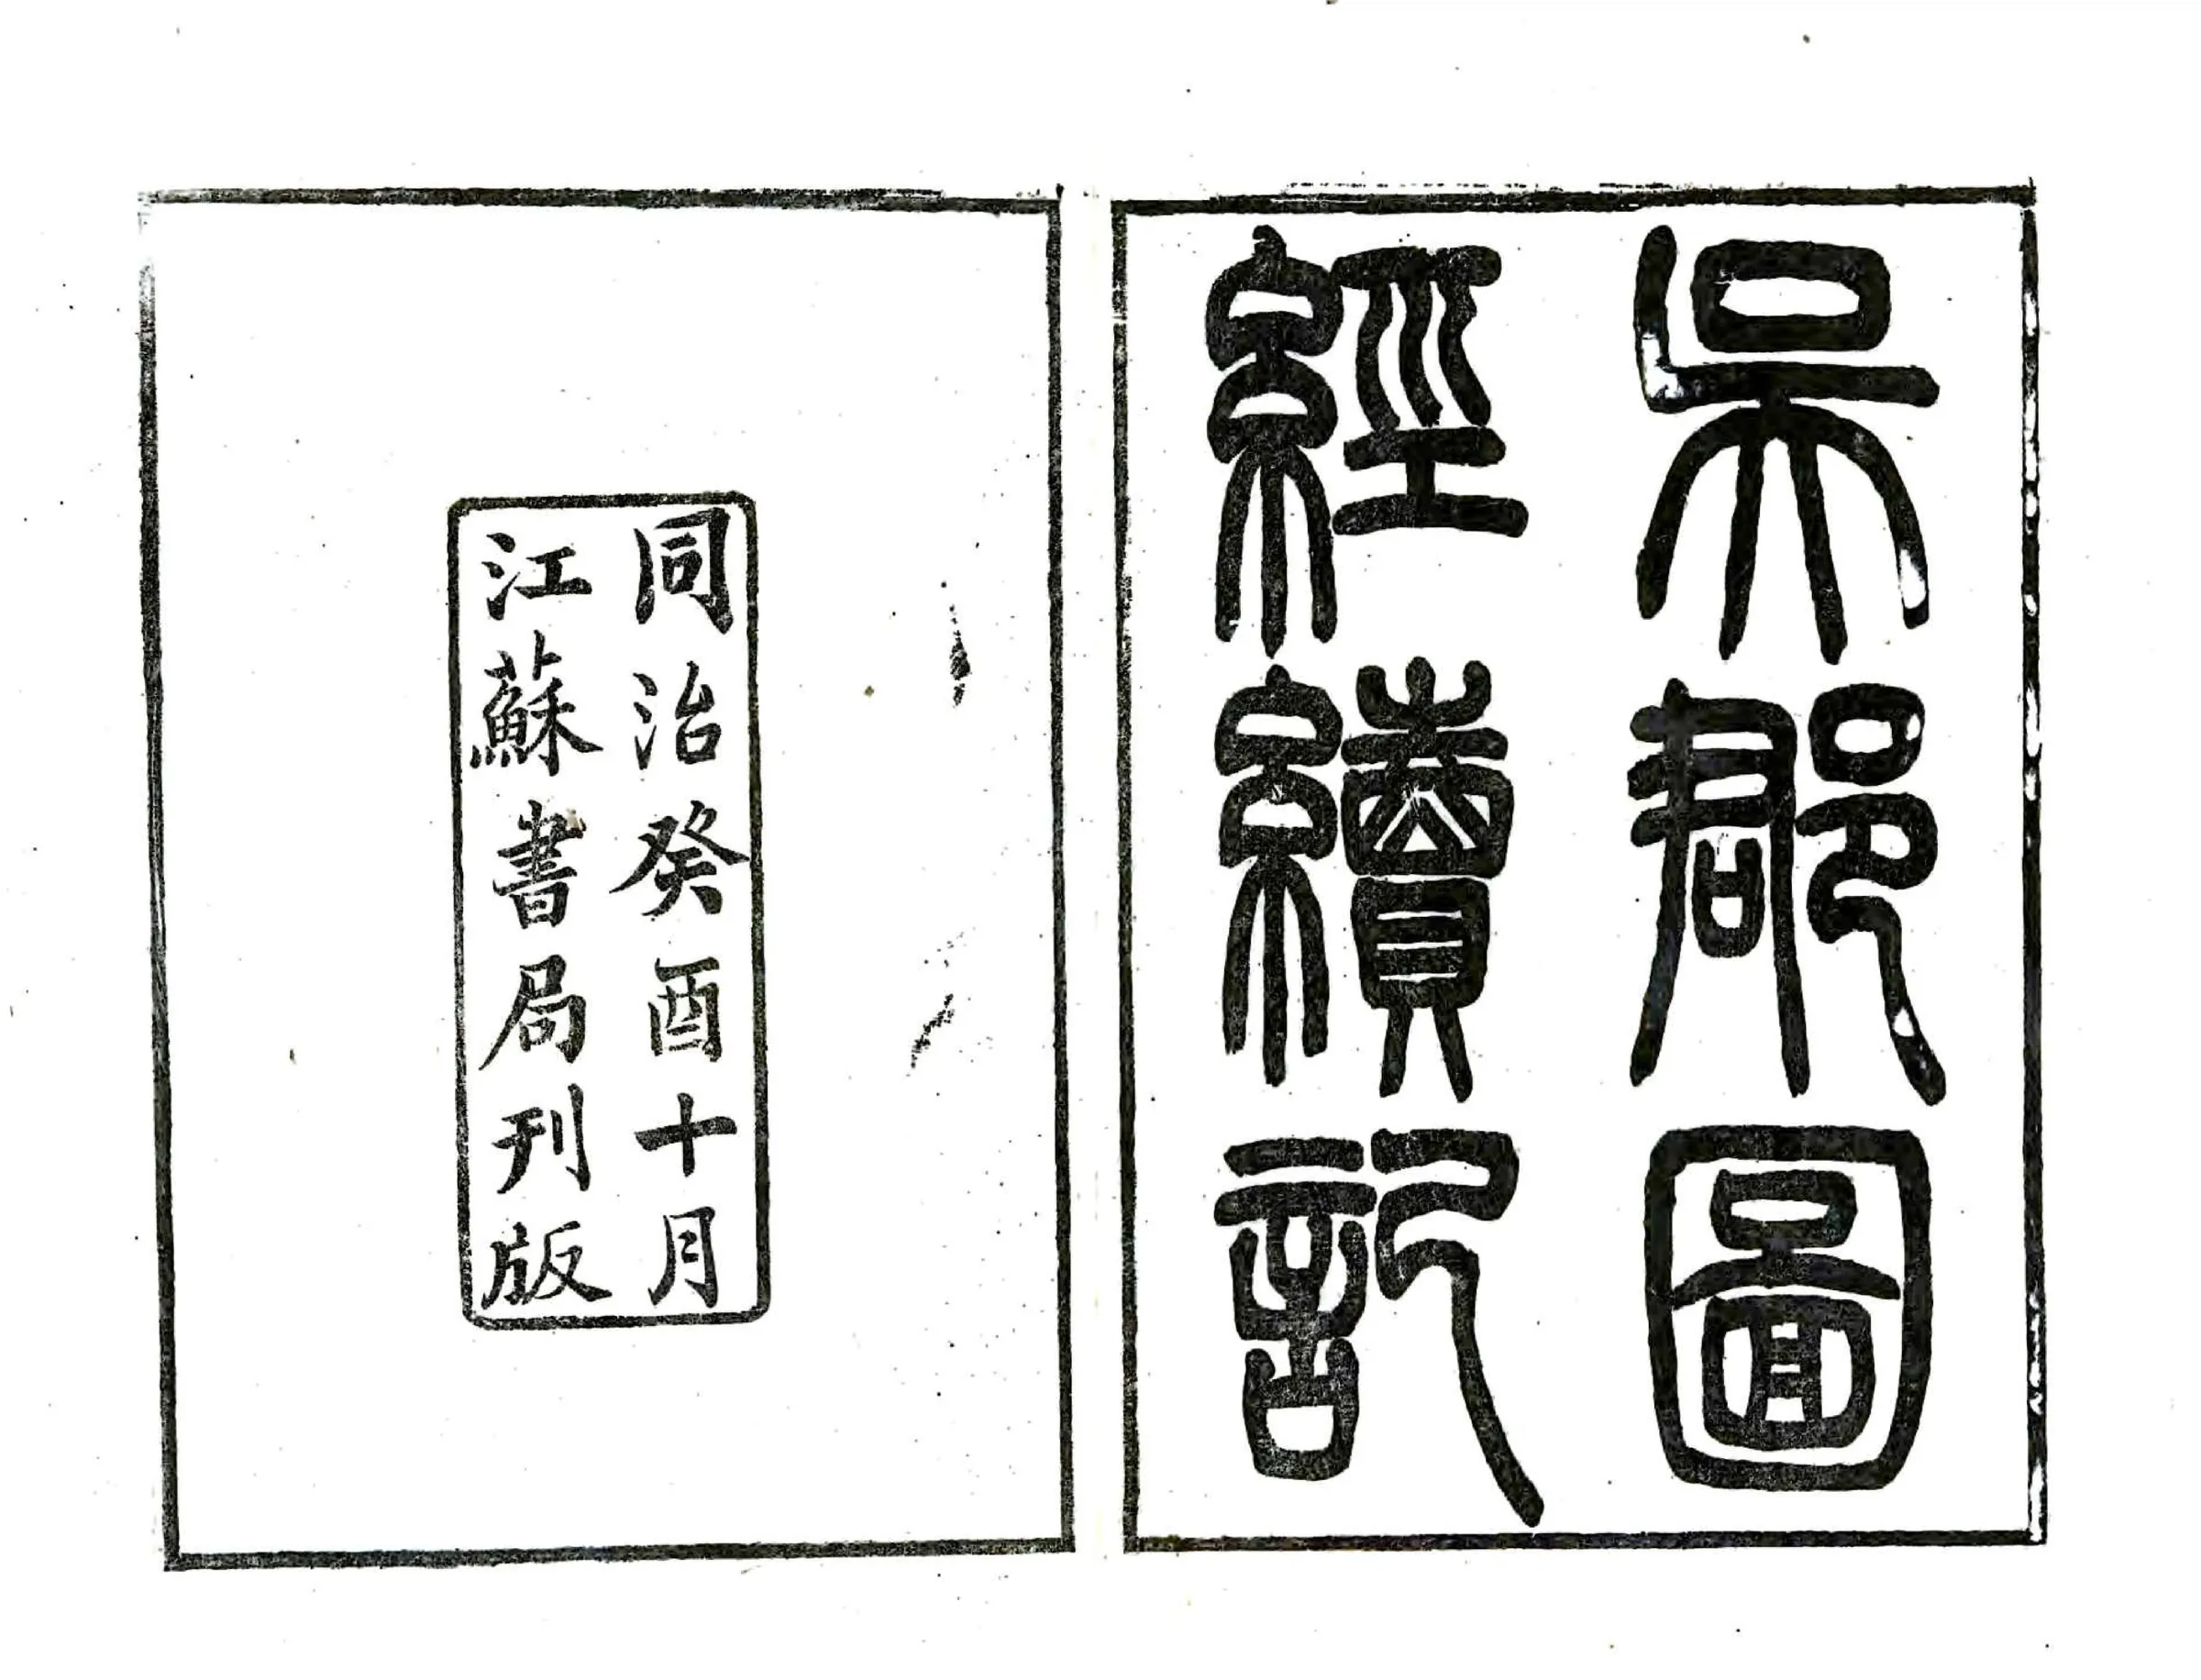 吳郡圖
經續記
同治癸酉十月
江蘇書局刊版